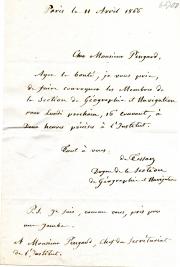 Paris le 11 Avril 1866
Cher Monsieur Pingard,
Ayez la bonté, je vous prie,
de faire convoquer les Membres de
la Section de Géographie et Navigation
pour Lundi prochain, 16 courant, à
deux heures précises à l'Institut.
Tout à vous,
de Tessan
Doyen de la Section
de Géographie et Navigation
P.S. Je suis, comme vous, pris par
une jambe.
A Monsieur Pingard, Chef du Secrétariat
de l'Institut.